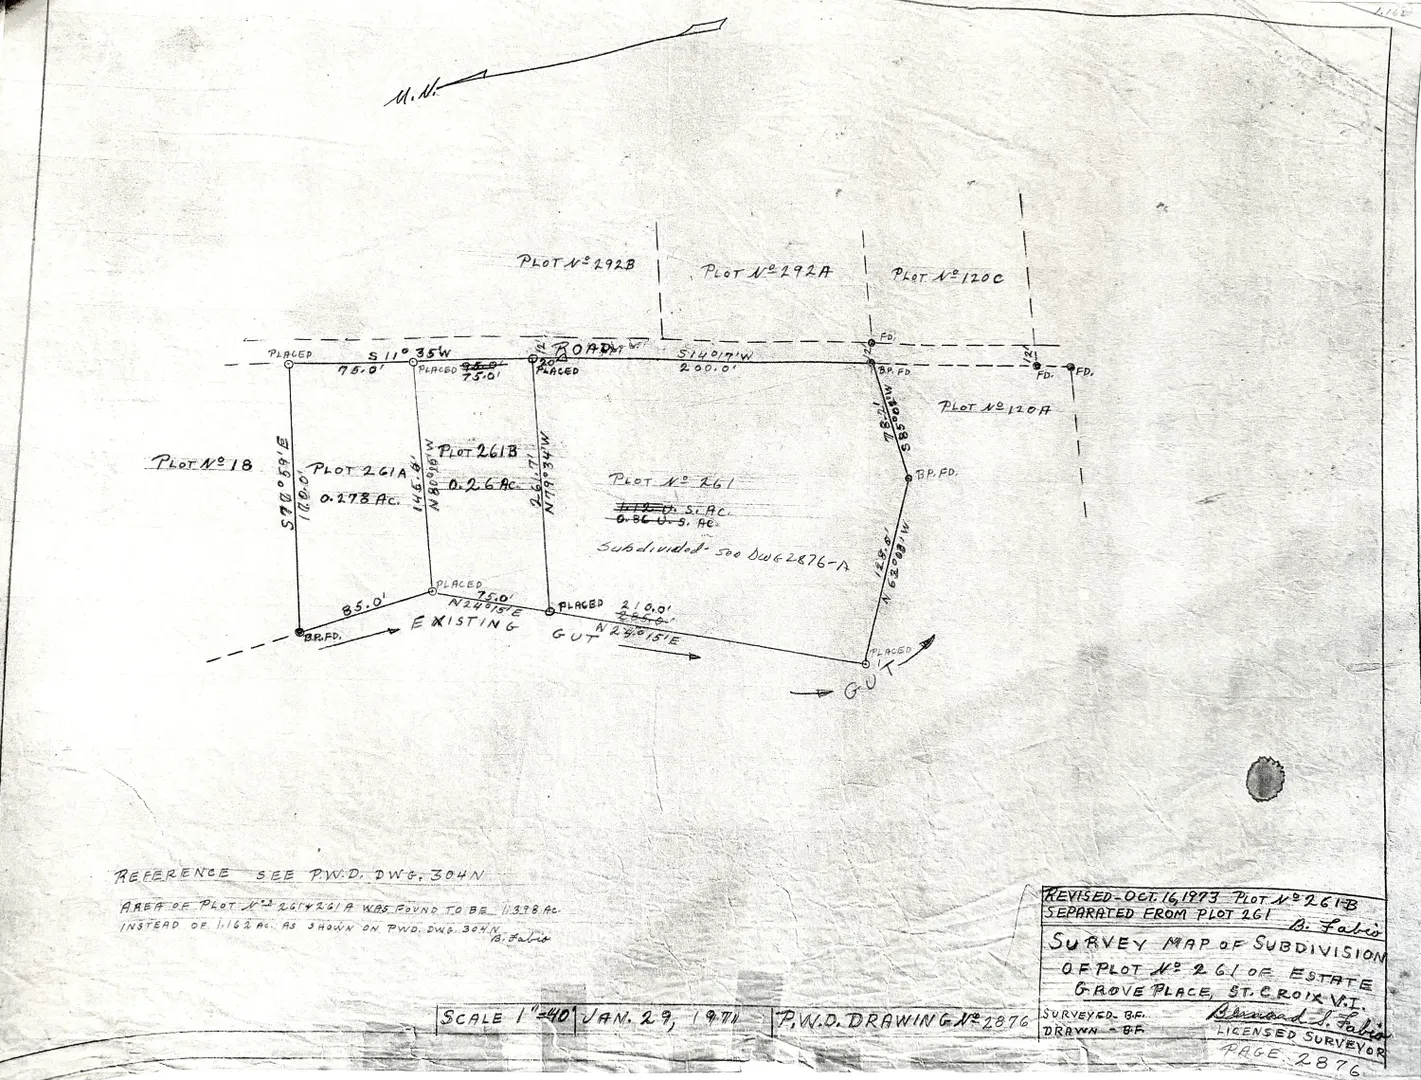 1.162
M.N.
PLOT Nº 292B
PLOT Nº 292A
PLOT Nº 120C
PLACED
S 11° 35'W
75.0'
PLACED
95.0'
75.0'
12'
20'
ROAD
PLACED
S14°17'W
200.0'
FD.
12'
B.P. FD.
12'
FD.
FD.
PLOT Nº 120A
PLOT Nº 18
PLOT 261A
0.278 AC.
N80°
W
PLOT 261B
0.26 AC.
261.71'
N79°34'W
PLOT Nº 261
1.12 U.S. AC.
0.86 U.S. AC.
Subdivided - see DWG 2876-A
78.21
S85°08'W
B.P. FD.
128.5'
N 62°08'W
PLACED
85.0'
75.0'
N24°15'E
PLACED
210.0'
285.0'
N24°15'E
B.P. FD.
EXISTING
GUT
PLACED
GUT
REFERENCE SEE P.W.D. DWG. 304N
AREA OF PLOT Nºs 261 & 261A WAS FOUND TO BE 1.398 AC.
INSTEAD OF 1.162 AC. AS SHOWN ON PWD. DWG. 304N
B. Fabio
REVISED-OCT. 16, 1973 PLOT Nº 261-B
SEPARATED FROM PLOT 261
B. Fabio
SURVEY MAP OF SUBDIVISION
OF PLOT Nº 261 OF ESTATE
GROVE PLACE, ST. CROIX V.I.
SURVEYED- B.F.
DRAWN - B.F.
LICENSED SURVEYOR
SCALE 1"=40'
JAN. 29, 1971
P.W.D. DRAWING Nº 2876
PAGE. 2876